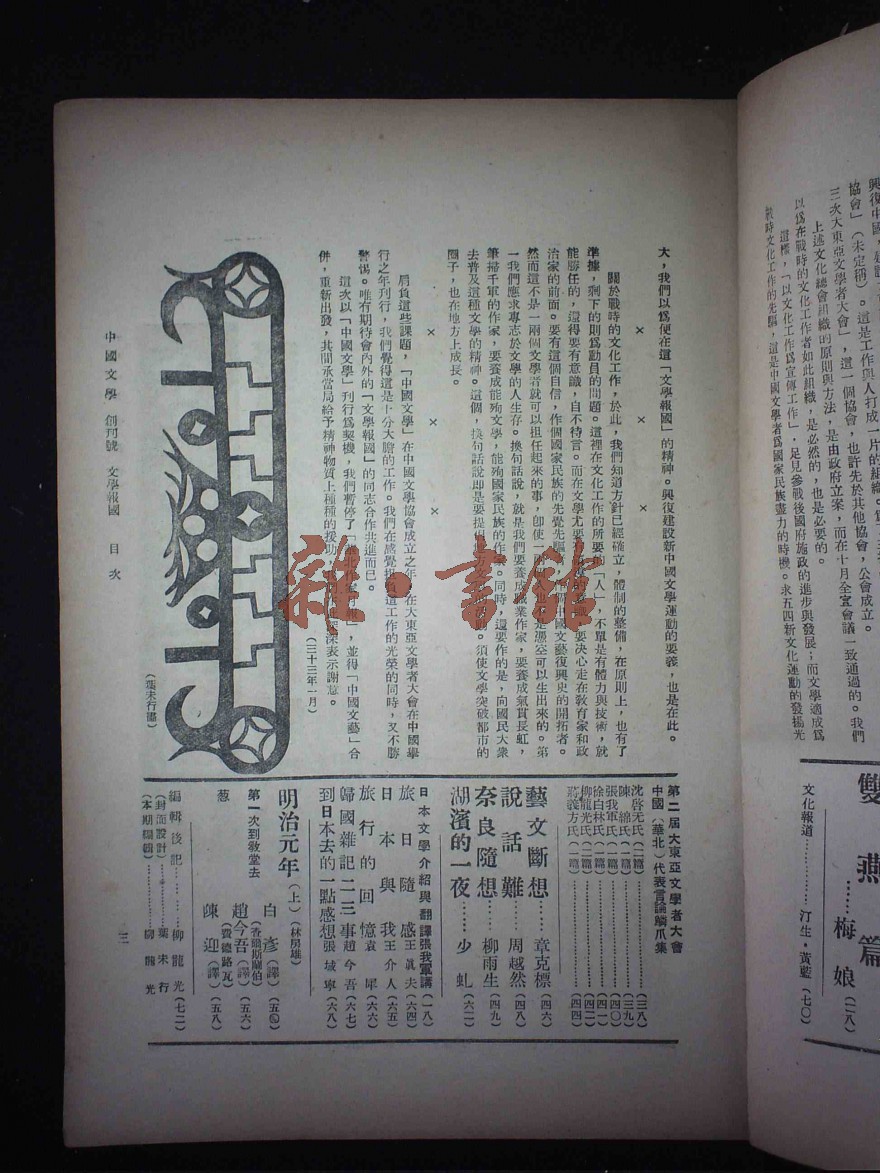 興復中國，
協會」（未定稱）。這是工作與人打成一片的組織。
三次大東亞文學者大會」，這一個協會，也許先於其他協會，公會成立。
上述文化總會組織的原則與方法，是由政府立案，而在十月全宣會議一致通過的。我們
以為在戰時的文化工作者如此組織，是必然的，也是必要的。
這樣，「以文化工作為宣傳工作」，足見參戰後國府施政的進步與發展；而文學適成為
戰時文化工作的先驅，這是中國文學者為國家民族盡力的時機。求五四新文化運動的發揚光
雙燕篇………梅娘（二八）
文化報道………汀生・黃藍（七〇）
大，我們以為便在這「文學報國」的精神。興復建設新中國文學運動的要義，也是在此。
×　×　×
關於戰時的文化工作，於此，我們知道方針已經確立，體制的整備，在原則上，也有了
準據，剩下的則為動員的問題。這裡在文化工作的所要的「人」，不單是有體力與技術，就
能勝任的，還得要有意識，自不待言。而在文學尤要有要決心走在教育家和政
治家的前面。要有這個自信，作個國家民族的先覺先驅中國文藝復興史的開拓者。
然而這不是一兩個文學者就可以担任起來的事，卽使一憑空可以生出來的。第
一我們應求專志於文學的人生存。換句話說，就是我們要養成職業作家，要養成氣貫長虹，
筆掃千軍的作家，要養成能殉文學，能殉國家民族的作家。同時，還要作的是，向國民大衆
去普及這種文學的精神。這個，換句話說卽是要提倡須使文學突破都市的
圈子，也在地方上成長。
×　×　×
肩負這些課題，「中國文學」在中國文學協會成立之年，在大東亞文學者大會在中國舉
行之年刊行，我們覺得這是十分大膽的工作。我們在感覺担負這工作的光榮的同時，又不勝
警惕。唯有期待會內外的「文學報國」的同志合作共進而已。
這次以「中國文學」刊行為契機，我們暫停了「」，並得「中國文藝」合
併，重新出發，其間承當局給予精神物質上種種的援助，深表示謝意。
（三十三年一月）
（葉未行畫）
中國文學 創刊號 文學報國 目次
第二届大東亞文學者大會
中國（華北）代表言論鱗爪集
沈啓无氏（二篇）………（三八）
陳綿氏（一篇）………（三九）
張我軍氏（二篇）………（四〇）
徐白林氏（一篇）………（四一）
柳龍光氏（一篇）………（四二）
蔣義方氏（一篇）………（四四）
藝文斷想………章克標（四六）
說話難………周越然（四八）
奈良隨想………柳雨生（四九）
湖濱的一夜………少虬（六二）
日本文學介紹與翻譯 張我軍講（一八）
旅日隨感 王眞夫（六四）
日本與我 王介人（六五）
旅行的回憶 袁犀（六六）
歸國雜記二三事 趙今吾（六七）
到日本去的一點感想 張域寧（六八）
明治元年（上）（林房雄）
白彥（譯）（五〇）
第一次到敎堂去（香爾斯薩伯）
趙今吾（譯）（五六）
葱（費德路瓦）
陳迎（譯）（五八）
編輯後記………柳龍光（七二）
（封面設計）………葉未行
（本期編輯）………柳龍光
三
雜・書館